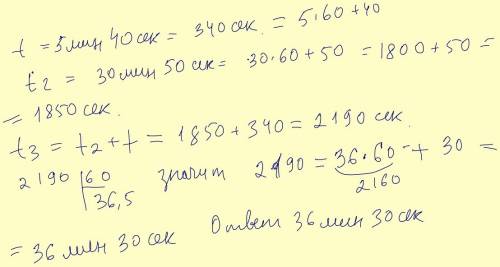 t = 5 мин 40 сек = 340 сек. = 5·60 + 40
t2 = 30 мин 50 сек = 30·60 + 50 = 1800 + 50 =
= 1850 сек.
t3 = t2 + t = 1850 + 340 = 2190 сек.
2190 | 60 значит 2190 = 36·60 + 30 =
36,5 2160
= 36 мин 30 сек Ответ 36 мин 30 сек